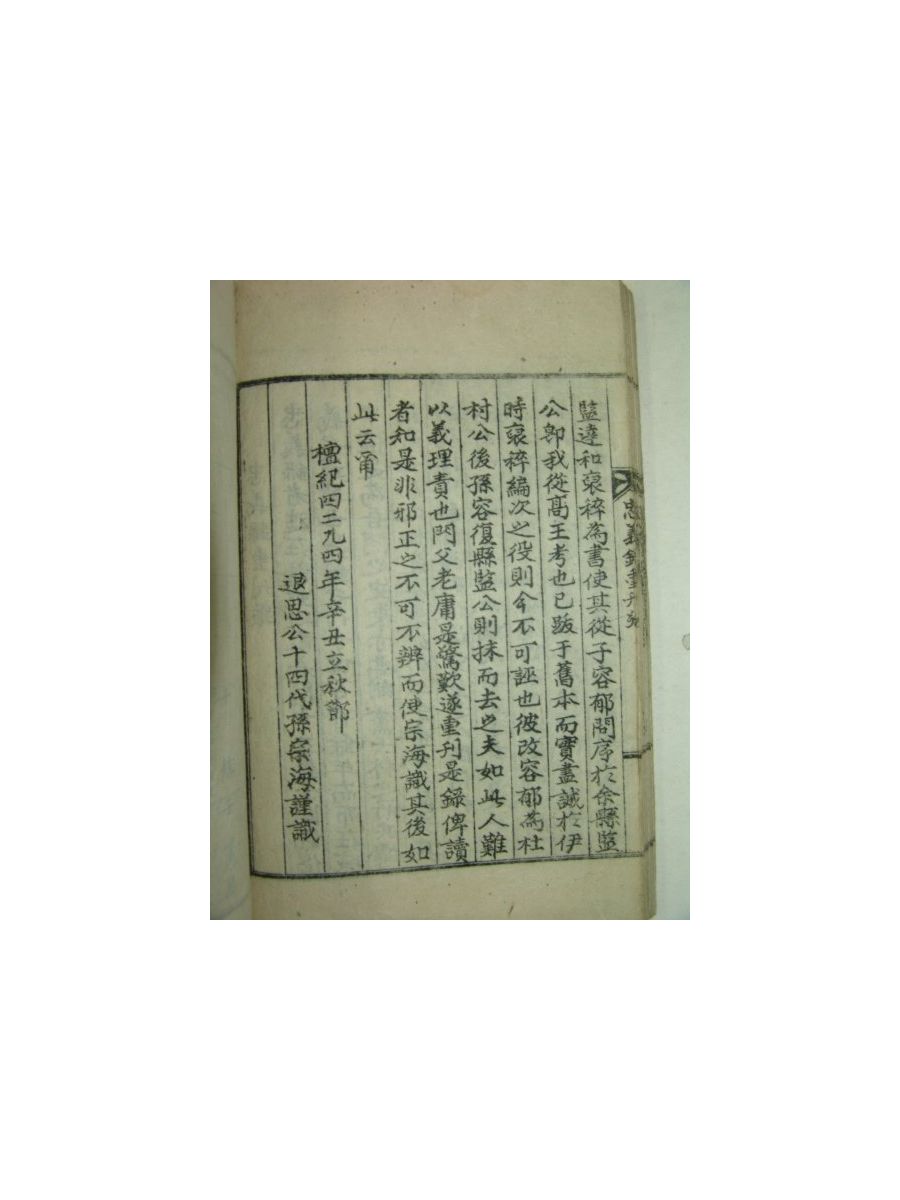 監達和裒稡為書使其從子容郁問序於余縣監
公卽我從高王考也已跋于舊本而實盡誠於伊
時裒稡編次之役則今不可誣也彼改容郁為杜
村公後孫容復縣監公則抹而去之夫如此人難
以義理責也門父老庸是驚歎遂重刊是錄俾讀
者知是非邪正之不可不辨而使宗海識其後如
此云甭
檀紀四二九四年辛丑立秋節
退思公十四代孫宗海謹識
忠義錄重刊